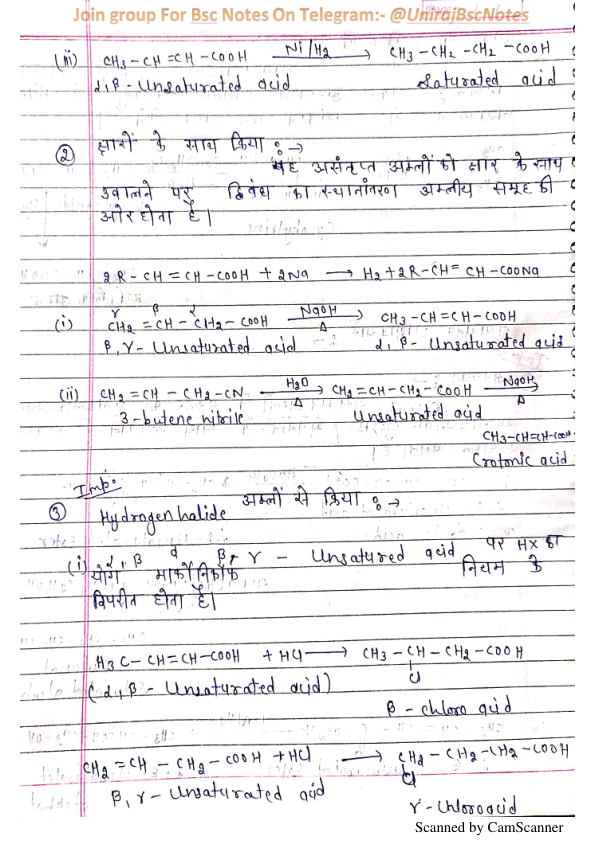 Join group For Bsc Notes On Telegram:- @UnirajBscNotes
(iii) CH3-CH=CH-COOH Ni/H2 → CH3-CH2-CH2-COOH
α,β-Unsaturated acid Saturated acid
② क्षारों के साथ क्रिया :→
यह असंतृप्त अम्लों को क्षार के साथ
उबालने पर द्विबंध का स्थानांतरण अम्लीय समूह की
ओर होता है।
2R-CH=CH-COOH + 2Na → H2+2R-CH=CH-COONa
γ β α
(i) CH2=CH-CH2-COOH NaOH Δ → CH3-CH=CH-COOH
β,γ-Unsaturated acid α,β-Unsaturated acid
(ii) CH2=CH-CH2-CN H2O Δ → CH2=CH-CH2-COOH NaOH Δ →
3-butene nitrile Unsaturated acid
CH3-CH=CH-COOH
Crotonic acid
Imp:
③ Hydrogen halide अम्लों से क्रिया :→
(i) α,β व β,γ - Unsatured acid पर HX का
योग मार्कोनिकॉफ नियम के
विपरीत होता है।
H3C-CH=CH-COOH + HCl → CH3-CH-CH2-COOH
(α,β-Unsaturated acid) Cl
β-chloro acid
CH2=CH-CH2-COOH + HCl → CH2-CH2-CH2-COOH
Cl
β,γ-Unsaturated acid
γ-chloroacid
Scanned by CamScanner